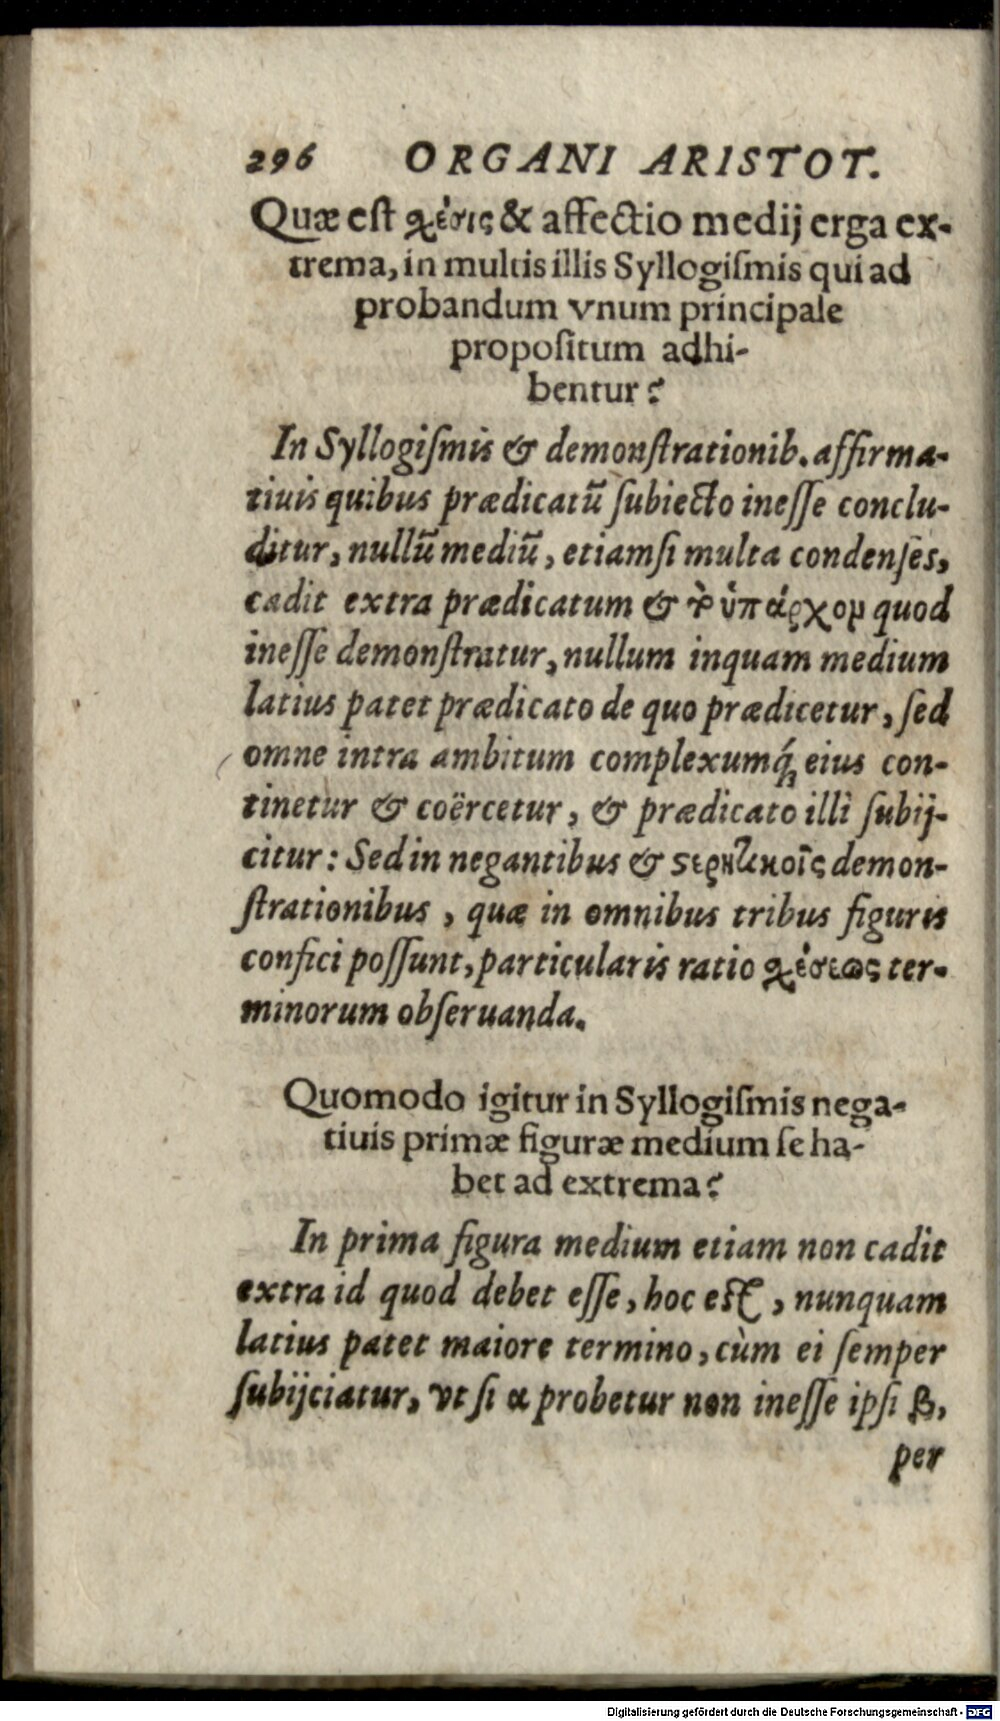 296 ORGANI ARISTOT.
Quæ est χέσις & affectio medij erga ex-
trema, in multis illis Syllogiſmis qui ad
probandum vnum principale
propoſitum adhi-
bentur?
In Syllogiſmis & demonſtrationib. affirma-
tiuis quibus prædicatū ſubiecto ineſſe conclu-
ditur, nullū mediū, etiamſi multa condenſes,
cadit extra prædicatum & τὸ ὑπάρχον quod
ineſſe demonſtratur, nullum inquam medium
latius patet prædicato de quo prædicetur, ſed
omne intra ambitum complexumq́ eius con-
tinetur & coërcetur, & prædicato illi ſubij-
citur: Sed in negantibus & στερητικοῖς demon-
ſtrationibus, quæ in omnibus tribus figuris
confici poſſunt, particularis ratio χέσεως ter-
minorum obſeruanda.
Quomodo igitur in Syllogiſmis nega-
tiuis primæ figuræ medium ſe ha-
bet ad extrema?
In prima figura medium etiam non cadit
extra id quod debet eſſe, hoc est, nunquam
latius patet maiore termino, cùm ei ſemper
ſubijciatur, vt ſi α probetur non ineſſe ipſi β,
per
Digitalisierung gefördert durch die Deutsche Forschungsgemeinschaft - DFG